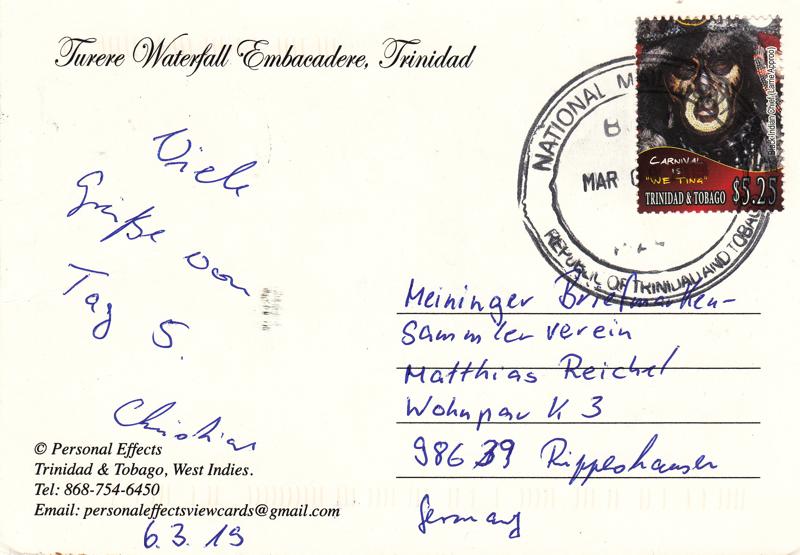 Turere Waterfall Embacadere, Trinidad
Viele
Grüße von
Tag 5.
Christian
© Personal Effects
Trinidad & Tobago, West Indies.
Tel: 868-754-6450
Email: personaleffectsviewcards@gmail.com
6.3.19
NATIONAL MAIL
MAR
REPUBLIC OF TRINIDAD AND TOBAGO
Black Indian Chief (Larrie Approo)
CARNIVAL
IS
"WE TING"
TRINIDAD & TOBAGO $5.25
Meininger Briefmarken-
Sammlerverein
Matthias Reichel
Wohnpark 3
98639 Rippershausen
Germany